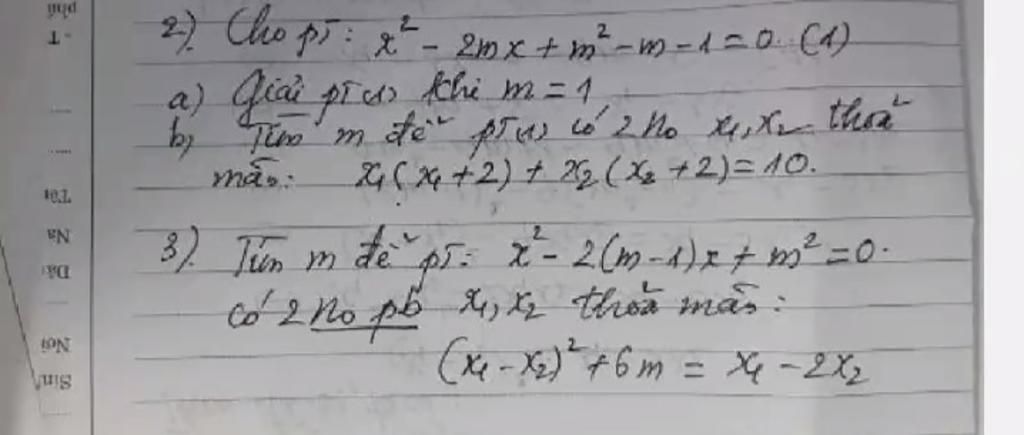 2). Cho pT: x² - 2mx + m² - m - 1 = 0. (1)
a) Giải pT (1) khi m = 1
b) Tìm m để pT (1) có 2 no x₁, x₂ thoả
mãn: x₁(x₁ + 2) + x₂(x₂ + 2) = 10.
3). Tìm m để pT: x² - 2(m - 1)x + m² = 0.
có 2 no pb x₁, x₂ thoả mãn:
(x₁ - x₂)² + 6m = x₁ - 2x₂